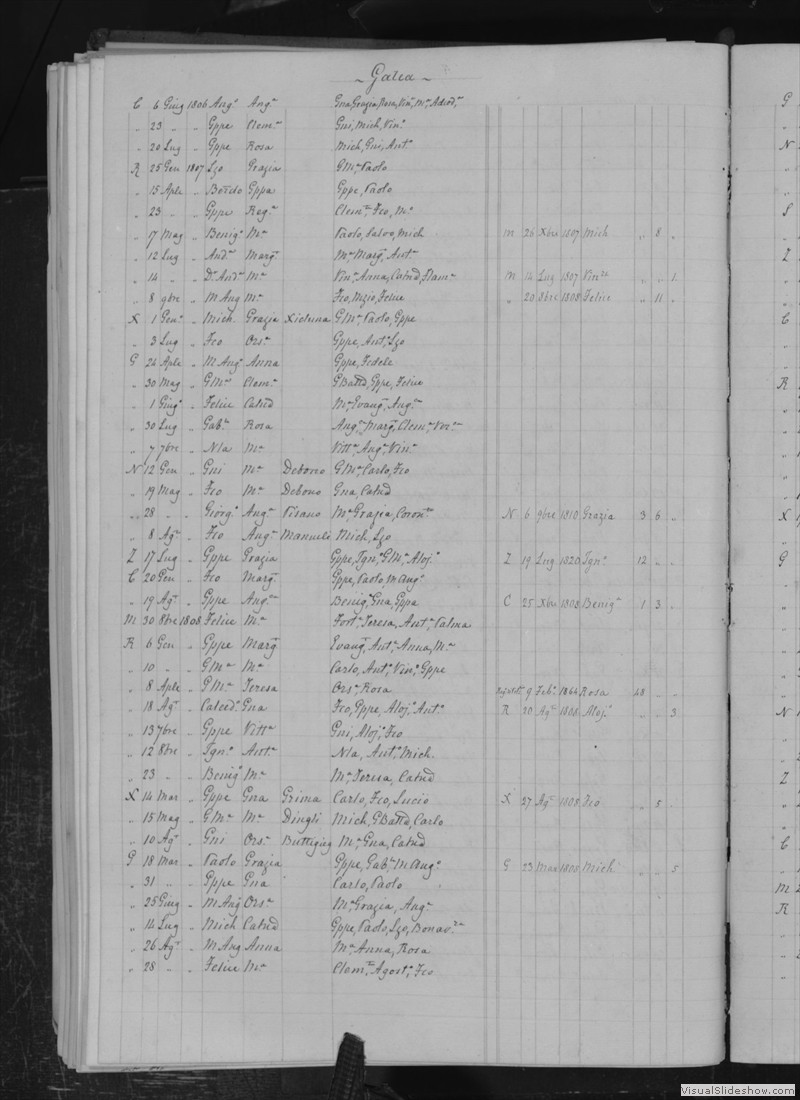 ~ Galea ~
C 6 Giug 1806 Ang.o Ang.a Gna, Grazia, Rosa, Vin.a, M.a, Adeod.a
" 23 " " Gppe Clem.a Gni, Mich, Vin.o
" 20 Lug " Gppe Rosa Mich, Gni, Ant.o
R 25 Gen 1807 Lzo Grazia GM.a, Paolo
" 15 Aple " Gppa Gppe, Paolo
" 23 " " Gppe Reg.a Clem.te, Fco, M.a
" 17 Mag " Benig.o M.a Paolo, Salvo, Mich m 26 Xbre 1807 Mich " 8 "
" 12 Lug " And.a Marg.a M.a Marg.a, Ant.o
" 14 " " D. And.a M.a Vin.o, Anna, Catnd, Flam.a M 14 Lug 1807 Vin.za " " 1
" 8 9bre " M Ang M.a Fco, Nzio, Felice " 20 8bre 1808 Felice " 11 "
X 1 Gen.o " Mich. Grazia Xicluna GM.a, Paolo, Gppe
" 3 Lug " Fco Ors.a Gppe, Ant.o, Lzo
G 24 Aple " M Ang.o Anna Gppe, Fedele
" 30 Mag " GM.a Clem.a GBattd, Gppe, Felice
" 1 Giug.o " Felice Catnd M.a, Evang.a, Ang.a
" 30 Lug " Gab.e Rosa Ang.o, Marg.a, Clem.a
" 7 7bre " Nla M.a Vitt.a, Ang.o, Vin.o
N 12 Gen " Gni M.a Debono GM.a, Carlo, Fco
" 19 Mag " Fco M.a Debono Gna, Catnd
" 28 " " Giorg.o Ang.a Pisano M.a, Grazia, Coron.a N 6 9bre 1810 Grazia 3 6 "
" 8 Ag.o " Fco Ang.a Manuele Mich, Lzo
Z 17 Lug " Gppe Grazia Gppe, Ign.o, GM.a, Aloj.o Z 19 Lug 1820 Ign.o 12 " "
C 20 Gen " Fco Marg.a Gppe, Paolo, M Ang.o
" 19 Ag.o " Gppe Ang.a Benig.o, Gna, Gppa C 25 Xbre 1808 Benig.o 1 3 "
M 30 8bre 1808 Felice M.a Fort.a, Teresa, Ant.a, Palma
R 6 Gen " Gppe Marg.a Evang.a, Ant.o, Anna, M.a
" 10 " " GM.a M.a Carlo, Ant.o, Vin.o, Gppe
" 8 Aple " GM.a Teresa Ors.a, Rosa 9 Feb.o 1864 Rosa 48 " "
" 18 Ag.o " Calced.o Gna Fco, Gppe, Aloj.o, Ant.o R 20 Ag.o 1808 Aloj.o " " 3
" 13 7bre " Gppe Vitt.a Gni, Aloj.o, Fco
" 12 8bre " Ign.o Ant.a Nla, Ant.o, Mich.
" 23 " " Benig.o M.a M.a, Teresa, Catnd
X 14 Mar " Gppe Gna Grima Carlo, Fco, Lucio X 27 Ag.o 1808 Fco " 5 "
" 15 Mag " GM.a M.a Dingli Mich, GBattd, Carlo
" 10 Ag.o " Gni Ors.a Buttigieg M.a, Gna, Catnd
G 18 Mar " Paolo Grazia Gppe, Gab.e, M Ang.o G 23 Mar 1808 Mich " " 5
" 31 " " Gppe Gna Carlo, Paolo
" 25 Giug " M Ang Ors.a M.a, Grazia, Ang.a
" 14 Lug " Mich Catnd Gppe, Paolo, Lzo, Bonav.ra
" 26 Ag.o " M Ang Anna M.a, Anna, Rosa
" 28 " " Felice M.a Clem.te, Agost.o, Fco
VisualSlideshow.com